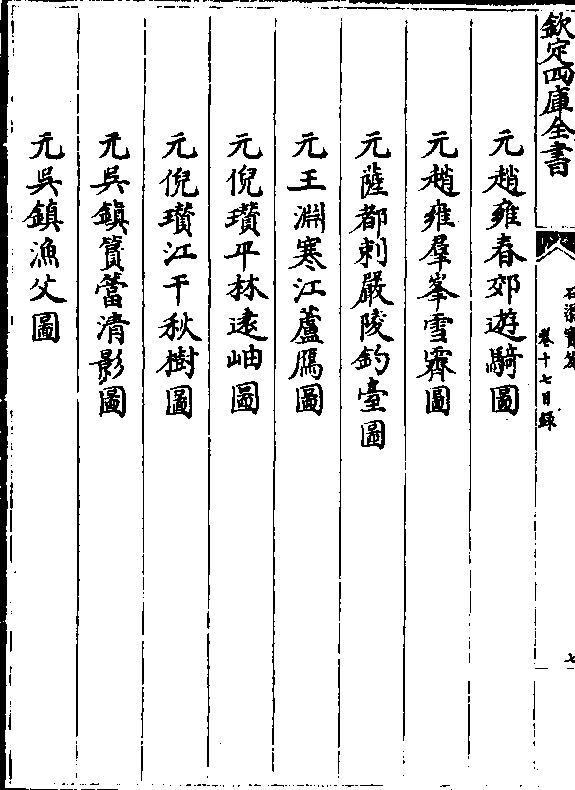 欽定四庫全書
石渠寶笈
卷十七目録
七
元趙雍春郊遊騎圖
元趙雍羣峯雪霽圖
元薩都剌嚴陵釣臺圖
元王淵寒江蘆鴈圖
元倪瓚平林逺岫圖
元倪瓚江干秋樹圖
元吳鎮篔簹清影圖
元吳鎮漁父圖